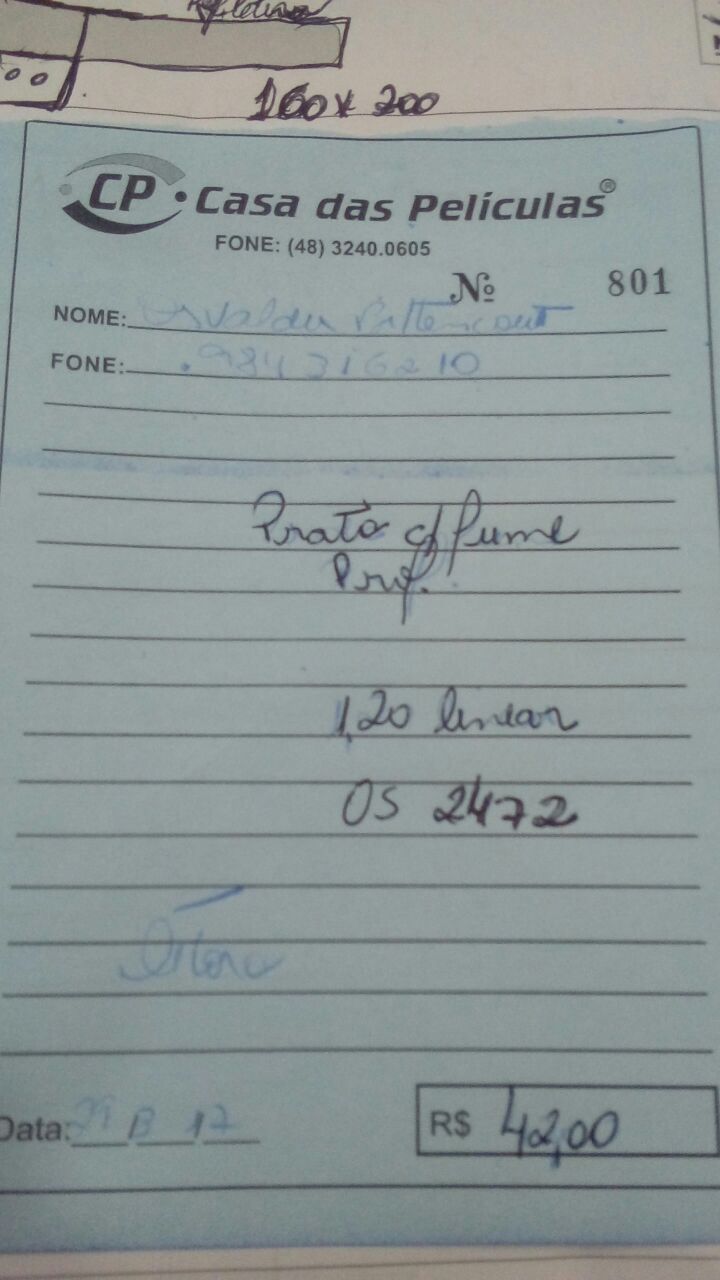 160x200
CP. Casa das Películas®
FONE: (48) 3240.0605
Nº 801
NOME: Osvaldir Bittencourt
FONE: 984316210
Prata c/ fume
Prof.
1,20 linear
OS 2472
Data: 29 12
R$ 42,00